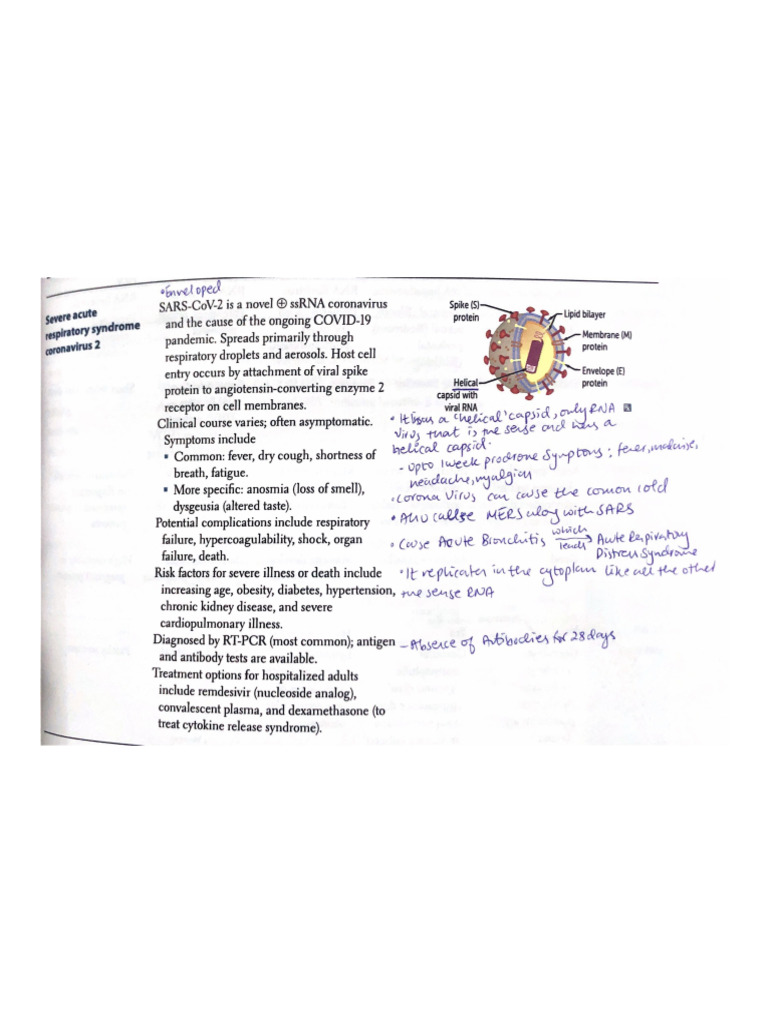 •Enveloped
Severe acute
respiratory syndrome
coronavirus 2
SARS-CoV-2 is a novel ⊕ ssRNA coronavirus
and the cause of the ongoing COVID-19
pandemic. Spreads primarily through
respiratory droplets and aerosols. Host cell
entry occurs by attachment of viral spike
protein to angiotensin-converting enzyme 2
receptor on cell membranes.
Clinical course varies; often asymptomatic.
Symptoms include
▪ Common: fever, dry cough, shortness of
breath, fatigue.
▪ More specific: anosmia (loss of smell),
dysgeusia (altered taste).
Potential complications include respiratory
failure, hypercoagulability, shock, organ
failure, death.
Risk factors for severe illness or death include
increasing age, obesity, diabetes, hypertension,
chronic kidney disease, and severe
cardiopulmonary illness.
Diagnosed by RT-PCR (most common); antigen
and antibody tests are available.
Treatment options for hospitalized adults
include remdesivir (nucleoside analog),
convalescent plasma, and dexamethasone (to
treat cytokine release syndrome).
Spike (S)
protein
Lipid bilayer
Membrane (M)
protein
Envelope (E)
protein
Helical
capsid with
viral RNA
• It has a 'helical' capsid, only RNA
virus that is +ve sense and has a
helical capsid.
- Upto 1 week prodrome symptoms: fever, malaise,
headache, myalgian
• Corona virus can cause the common cold
• Also MERS along with SARS
• Cause Acute Bronchitis which leads → Acute Respiratory
Distress Syndrome
• It replicates in the cytoplasm like all the other
+ve sense RNA
- Absence of Antibodies for 28 days